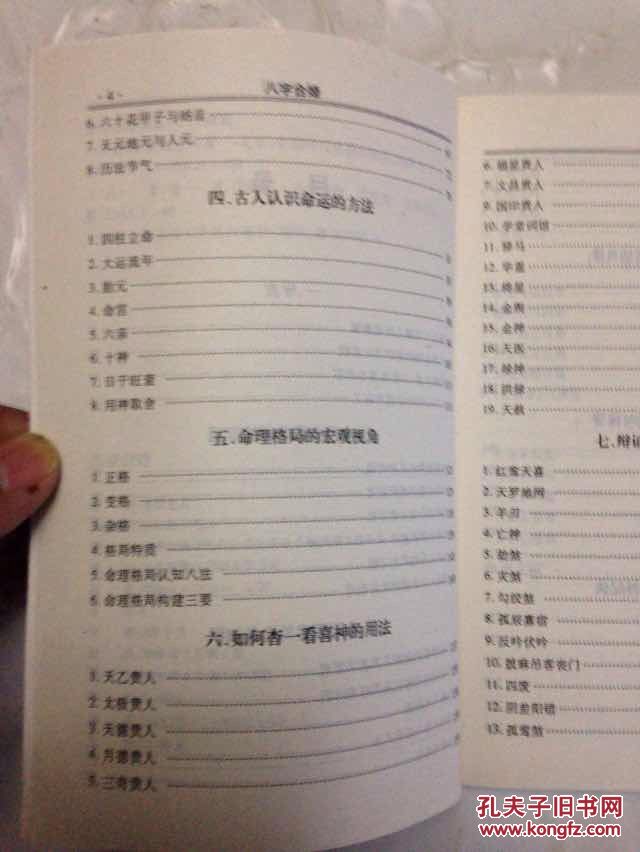 · 2 · 八字合婚
6. 六十花甲子与纳音
7. 天元地元与人元
8. 历法节气
四、古人认识命运的方法
1. 四柱立命
2. 大运流年
3. 胎元
4. 命宫
5. 六亲
6. 十神
7. 日干旺衰
8. 用神取舍
五、命理格局的宏观视角
1. 正格
2. 变格
3. 杂格
4. 格局特质
5. 命理格局认知八法
6. 命理格局构建三要
六、如何查一看喜神的用法
1. 天乙贵人
2. 太极贵人
3. 天德贵人
4. 月德贵人
5. 三奇贵人
6. 福星贵人
7. 文昌贵人
9. 国印贵人
10. 学堂词馆
11. 驿马
12. 华盖
13. 将星
14. 金舆
15. 金神
16. 天医
17. 禄神
18. 拱禄
19. 天赦
七、辩证
1. 红鸾天喜
2. 天罗地网
3. 羊刃
4. 亡神
5. 劫煞
6. 灾煞
7. 勾绞煞
8. 孤辰寡宿
9. 反吟伏吟
10. 披麻吊客丧门
11. 四废
12. 阴差阳错
13. 孤鸾煞
孔夫子旧书网
www.kongfz.com